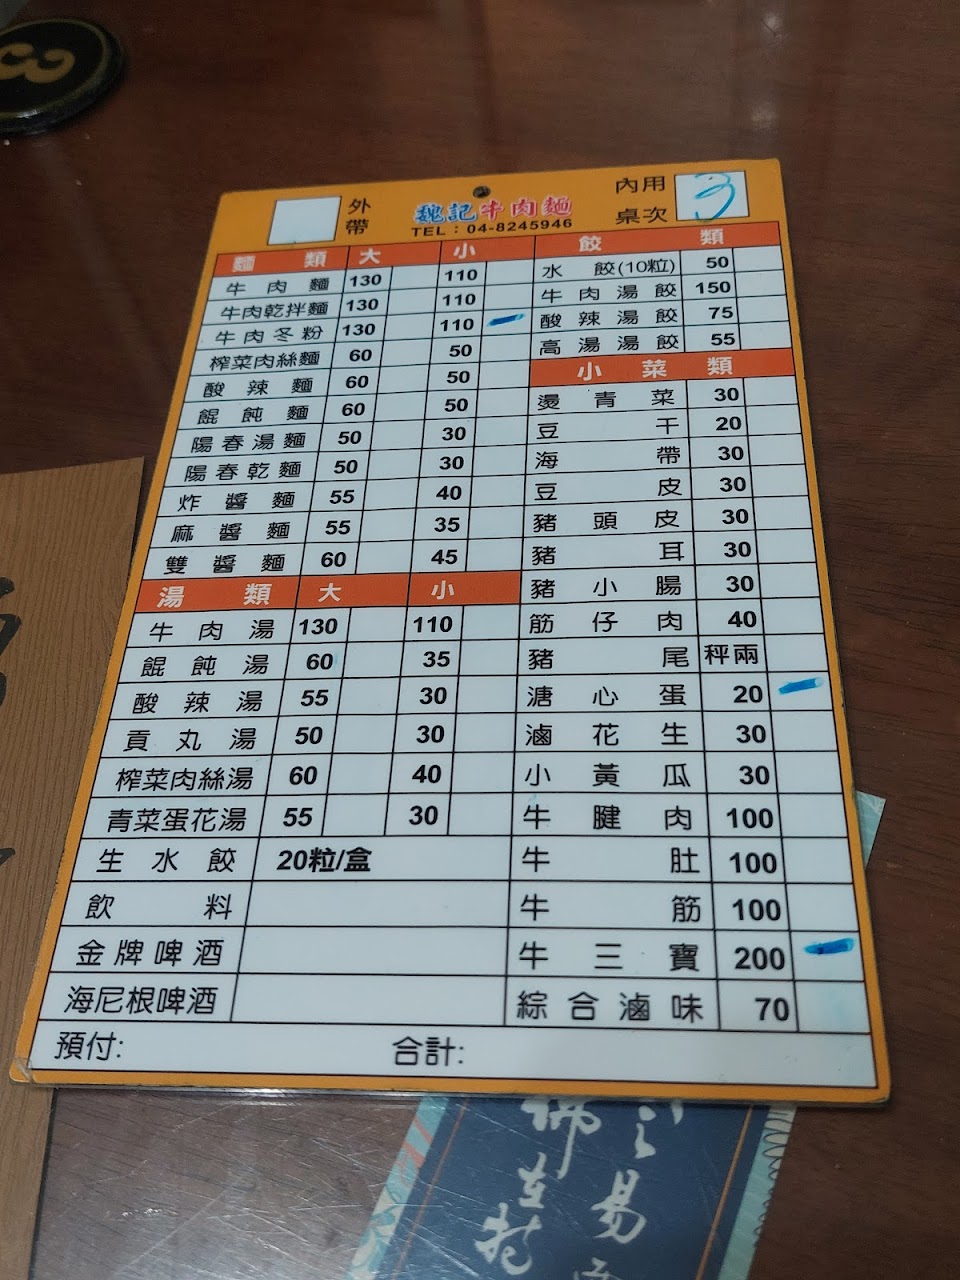 3
外帶
魏記牛肉麵
TEL：04-8245946
內用桌次
3
麵類 大 小
牛肉麵 130 110
牛肉乾拌麵 130 110
牛肉冬粉 130 110
榨菜肉絲麵 60 50
酸辣麵 60 50
餛飩麵 60 50
陽春湯麵 50 30
陽春乾麵 50 30
炸醬麵 55 40
麻醬麵 55 35
雙醬麵 60 45
湯類 大 小
牛肉湯 130 110
餛飩湯 60 35
酸辣湯 55 30
貢丸湯 50 30
榨菜肉絲湯 60 40
青菜蛋花湯 55 30
生水餃 20粒/盒
飲料
金牌啤酒
海尼根啤酒
餃類
水餃(10粒) 50
牛肉湯餃 150
酸辣湯餃 75
高湯湯餃 55
小菜類
燙青菜 30
豆干 20
海帶 30
豆皮 30
豬頭皮 30
豬耳 30
豬小腸 30
筋仔肉 40
豬尾 秤兩
溏心蛋 20
滷花生 30
小黃瓜 30
牛腱肉 100
牛肚 100
牛筋 100
牛三寶 200
綜合滷味 70
預付: 合計: